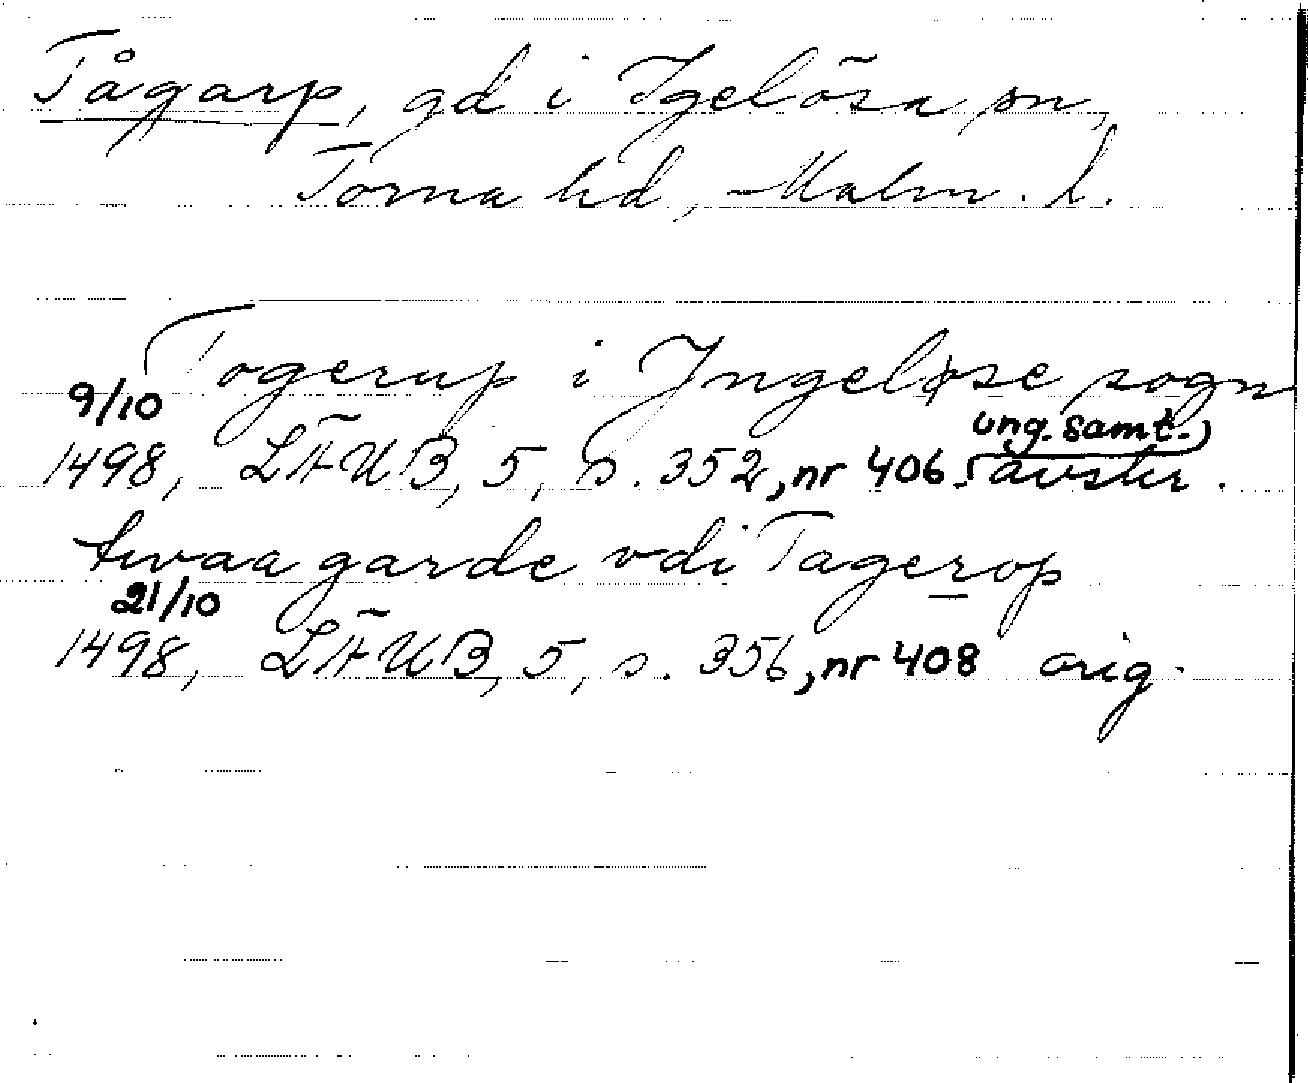 Tågarp, gd i Igelösa sn,
Torna hd, Malm. l.
Togerup i Ingeløse sogn
9/10 ung. samt.)
1498, LÄUB, 5, s. 352, nr 406. avskr.
twaa garde vdi Tagerop
21/10
1498, LÄUB, 5, s. 356, nr 408 orig.